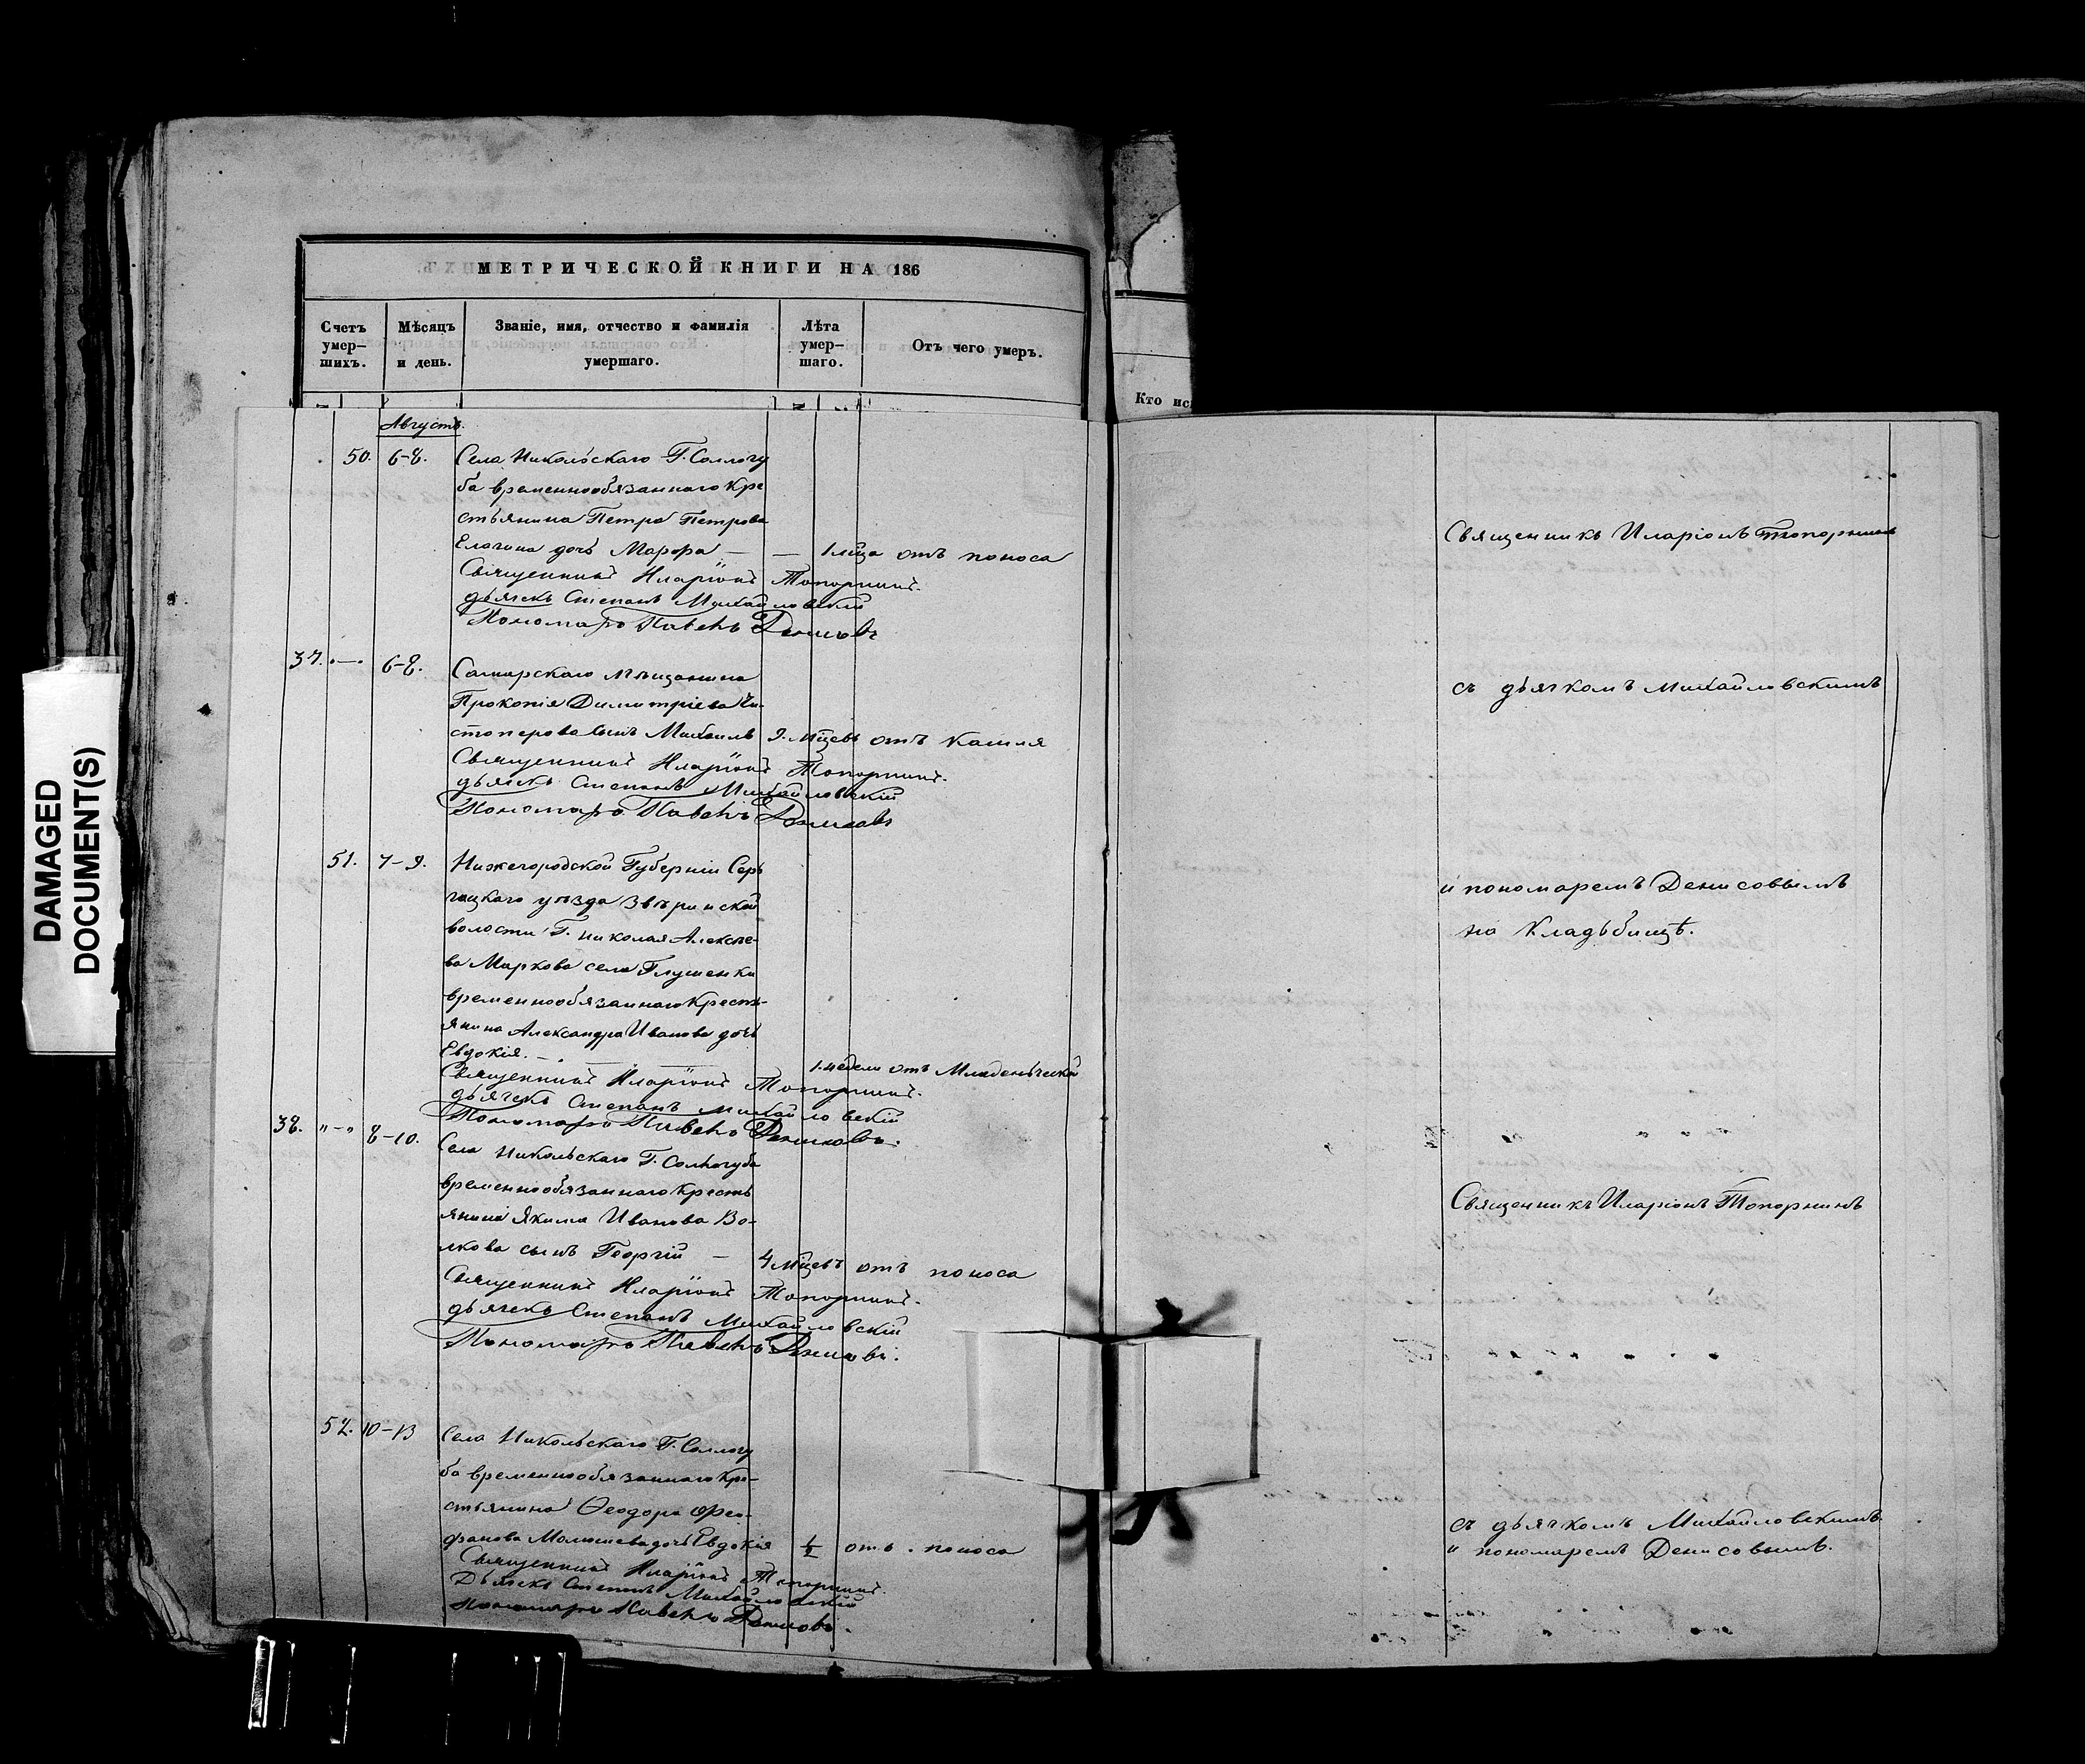 DAMAGED
DOCUMENT(S)
МЕТРИЧЕСКОЙ КНИГИ НА 186
Счетъ умер—шихъ.
Мѣсяцъ и день.
Званіе, имя, отчество и фамилія умершаго.
Лѣта умер—шаго.
Отъ чего умеръ.
Августъ.
50. 6-8. Села Никольскаго Г. Соллогу
ба временнообязаннаго Кре
стьянина Петра Петрова
Елагина дочь Марфа — — 1 мца отъ поноса
Священникъ Иларіонъ Топорнинъ.
дьячекъ Степанъ Михайловскій
Пономарь Павелъ Денисовъ
37. "—" 6-8. Самарскаго мѣщанина
Прокопія Димитріева Чи-
стоперова сынъ Михаилъ 9. мцевъ отъ Кашля
Священникъ Иларіонъ Топорнинъ.
дьячекъ Степанъ Михайловскій
Пономарь Павелъ Денисовъ
51. 7-9. Нижегородской Губерніи Сер
гацкаго уѣзда Звѣринской
волости Г. Николая Алексѣе-
ва Маркова села Глушенки
временнообязаннаго Кресть-
янина Александра Иванова дочь
Евдокія. — 1. недели отъ Младенческой
Священникъ Иларіонъ Топорнинъ.
дьячекъ Степанъ Михайловскій
Пономарь Павелъ Денисовъ.
38. "—" 8-10. Села Никольскаго Г. Соллогуба
временнообязаннаго Кресть
янина Якима Иванова Во-
лкова сынъ Георгій — 4 мцевъ отъ поноса
Священникъ Иларіонъ Топорнинъ.
дьячекъ Степанъ Михайловскій
Пономарь Павелъ Денисовъ.
52. 10-13 Села Никольскаго Г. Соллогу
ба временнообязаннаго Кре-
стьянина Ѳеодора Ѳео-
фанова дочь Евдокія ½ отъ поноса
Священникъ Иларіонъ Топорнинъ.
Дьячекъ Степанъ Михайловскій
Пономарь Павелъ Денисовъ.
Кто ис
Священникъ Иларіонъ Топорнинъ
съ дьячкомъ Михайловскимъ
и пономаремъ Денисовымъ
на Кладьбищѣ.
Священникъ Иларіонъ Топорнинъ
съ дьячкомъ Михайловскимъ
и пономаремъ Денисовымъ.